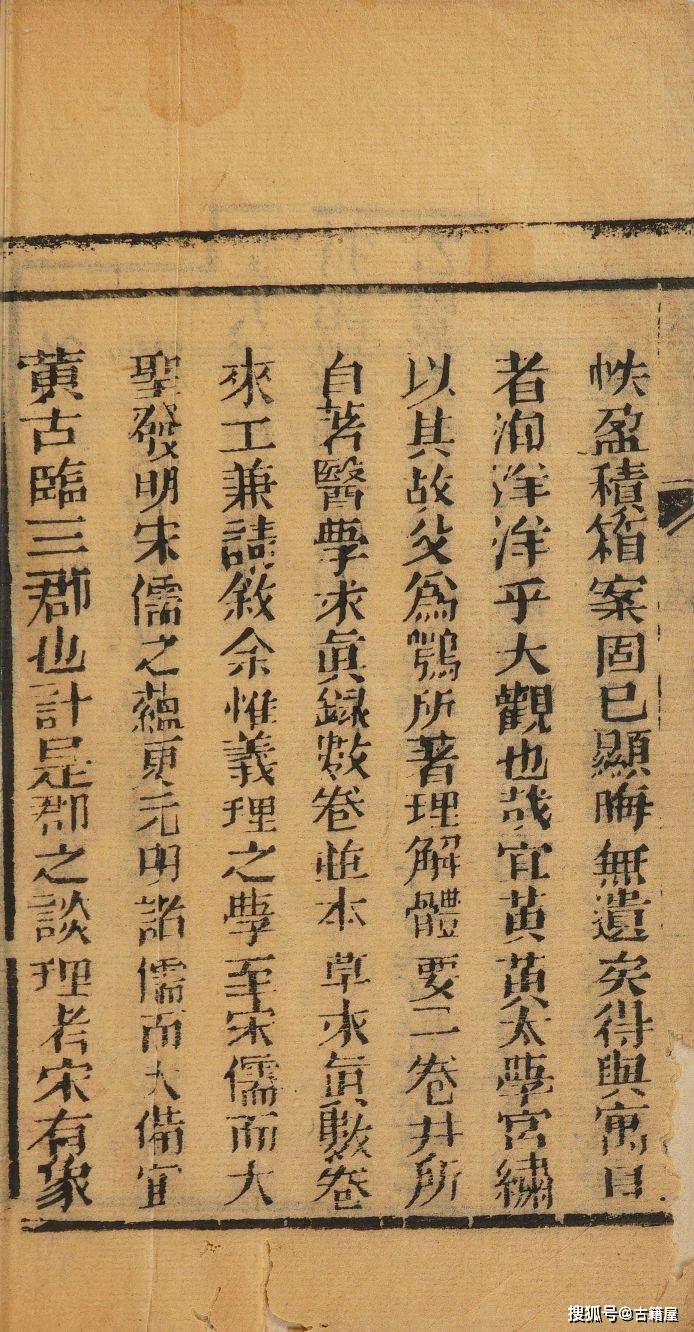 帙盈積箱案固已顯晦無遺矣得與寓目
者洵洋洋乎大觀也哉宜黄黄太學宮繡
以其故父爲鶚所著理解體要二卷并所
自著醫學求眞録數卷並本草求眞數卷
來工兼請敘余惟義理之學至宋儒而大
聖發明宋儒之蘊更元明諸儒而大備宜
黄古臨三郡也計是郡之談理者宋有象
搜狐号@古籍屋